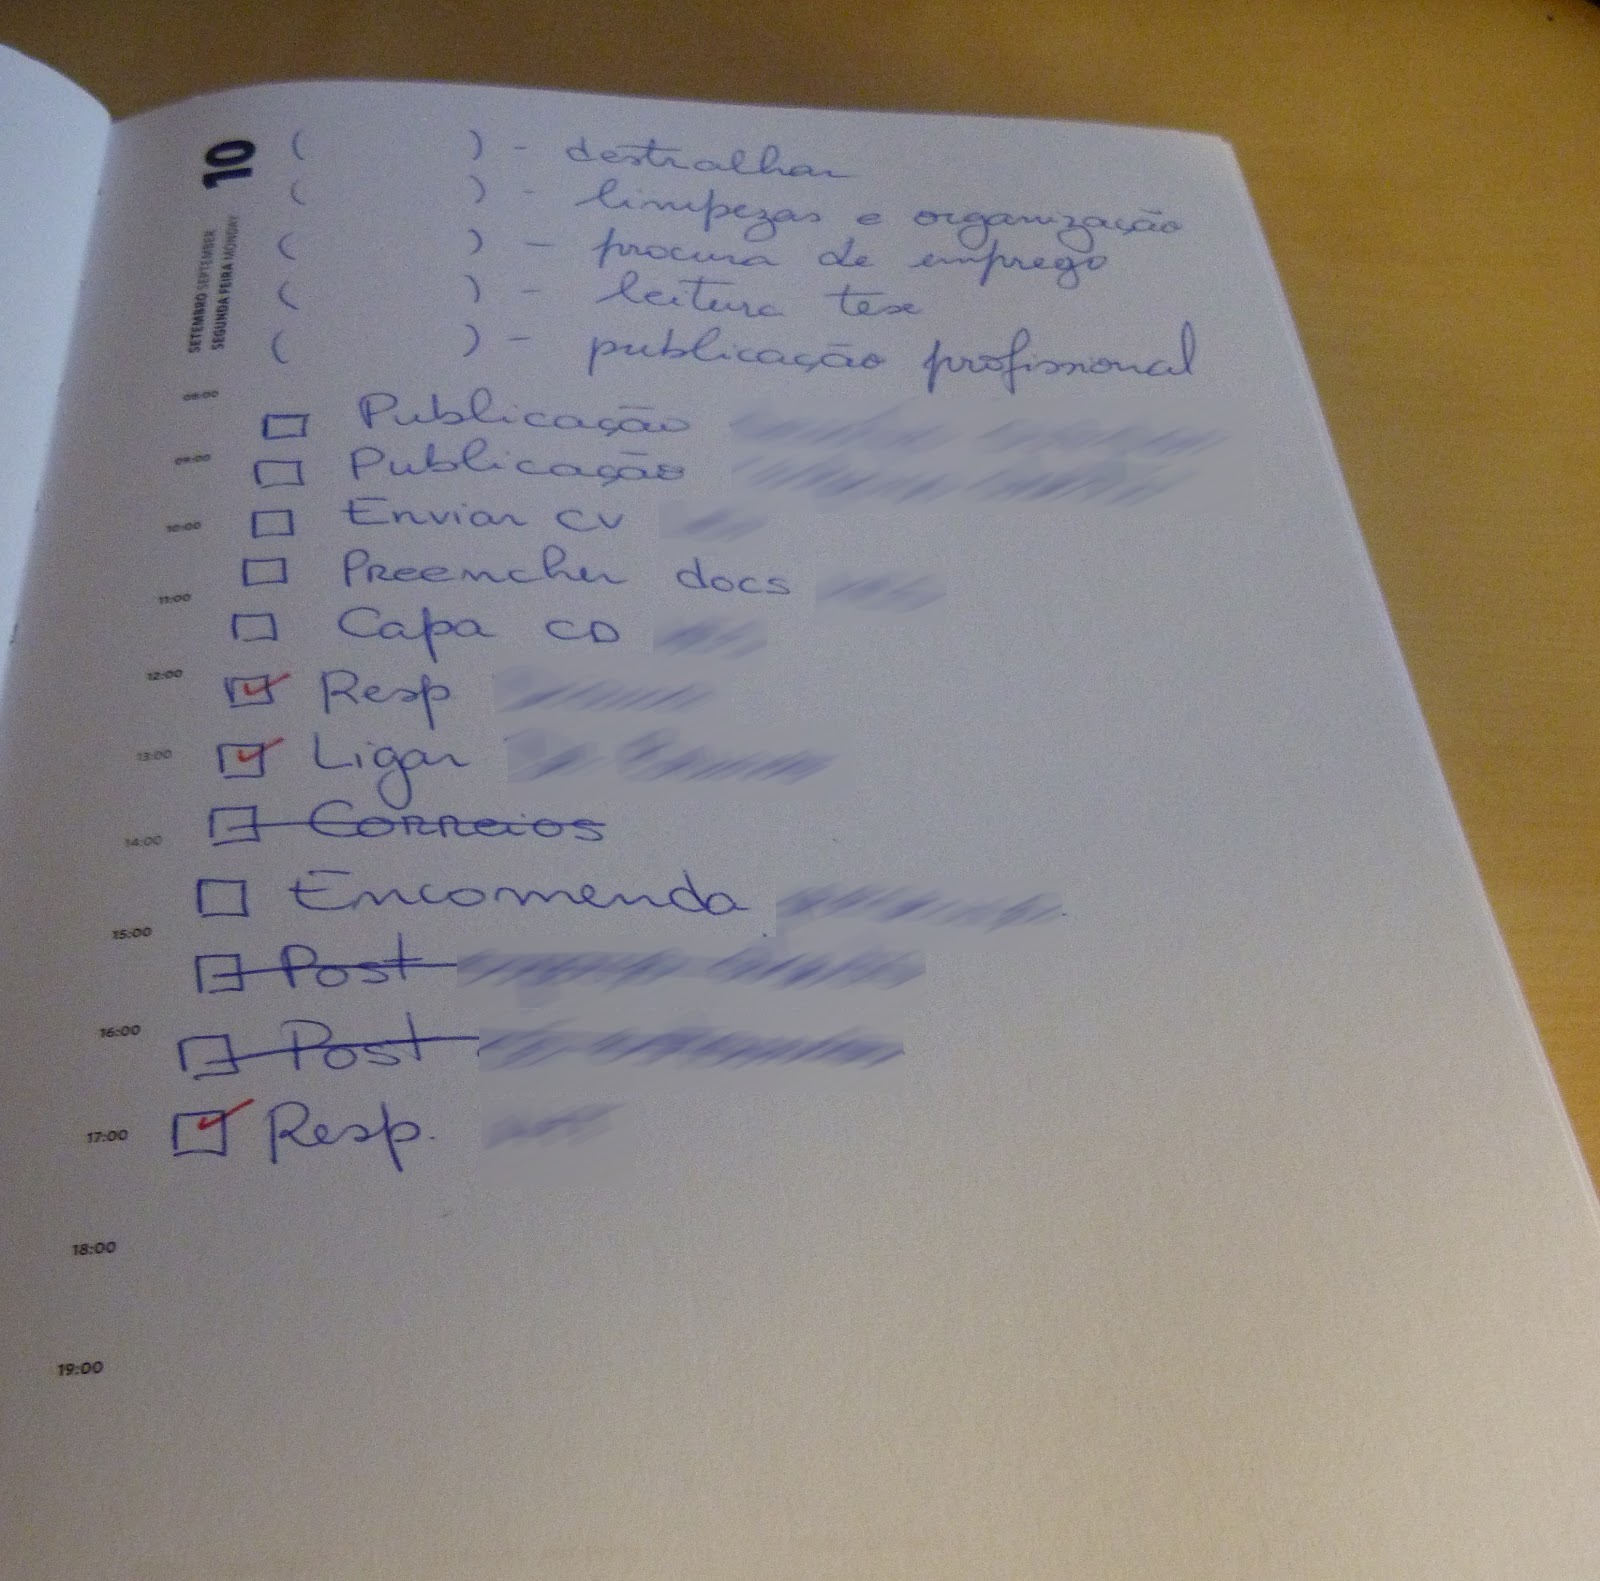 10
SETEMBRO SEPTEMBER
SEGUNDA FEIRA MONDAY
( ) - destralhar
( ) - limpezas e organização
( ) - procura de emprego
( ) - leitura tese
( ) - publicação profissional
08:00
Publicação
09:00
Publicação
10:00
Enviar CV
Preencher docs
11:00
Capa CD
12:00
Resp
13:00
Ligar
14:00
Correios
Encomenda
15:00
Post
16:00
Post
17:00
Resp.
18:00
19:00